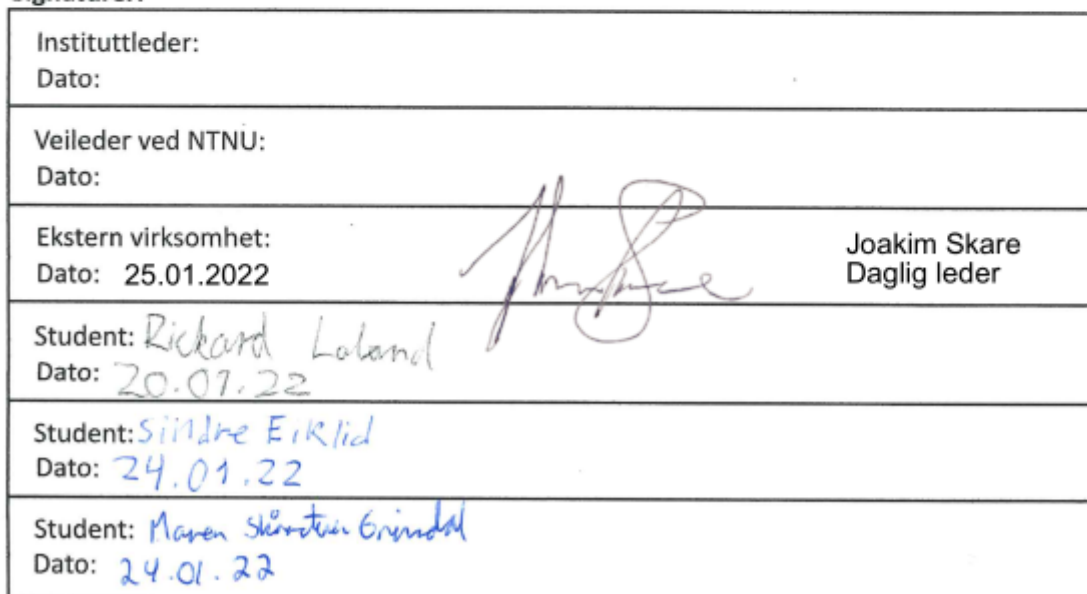 Instituttleder:
Dato:
Veileder ved NTNU:
Dato:
Ekstern virksomhet:
Dato: 25.01.2022
Joakim Skare
Daglig leder
Student: Rickard Loland
Dato: 20.01.22
Student: Sindre Eiklid
Dato: 24.01.22
Student: Maren Grindal
Dato: 24.01.22